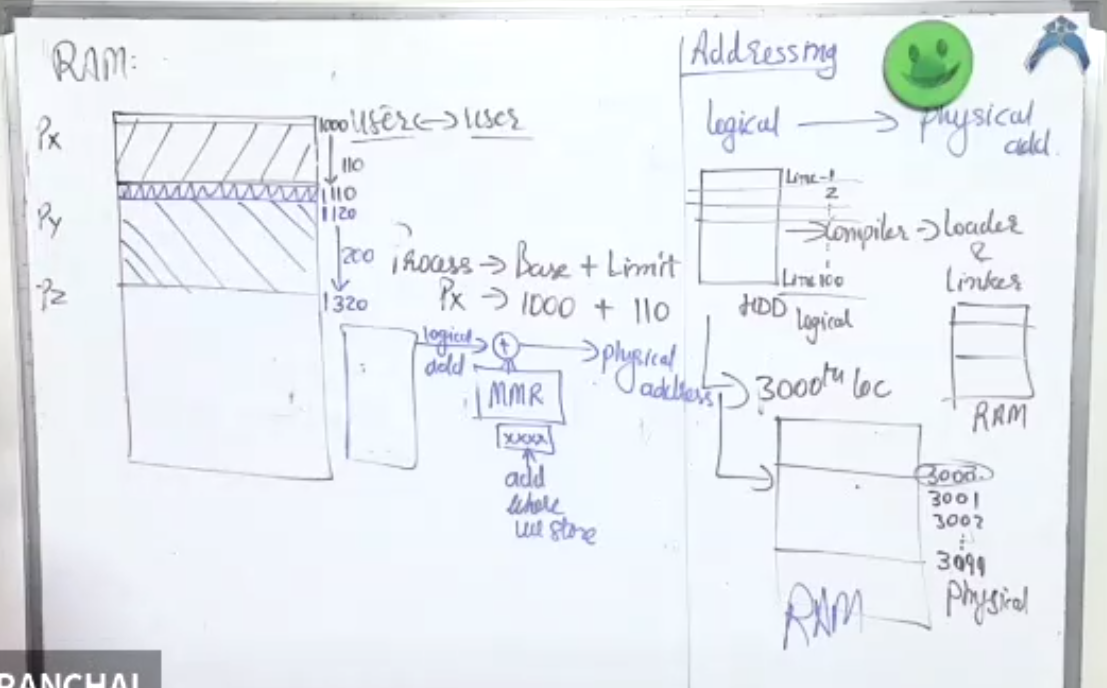 RAM:
Px
Py
Pz
1000
110
1110
1120
200
1320
user <-> user
Process → Base + Limit
Px → 1000 + 110
logical
add
+
→ physical
address
MMR
xxxx
add
where
we store
Addressing
logical → physical
add.
Line-1
2
Line 100
→ Compiler → Loader
&
Linker
HDD
logical
RAM
3000th loc
3000
3001
3002
3099
Physical
RAM
RANCHAL